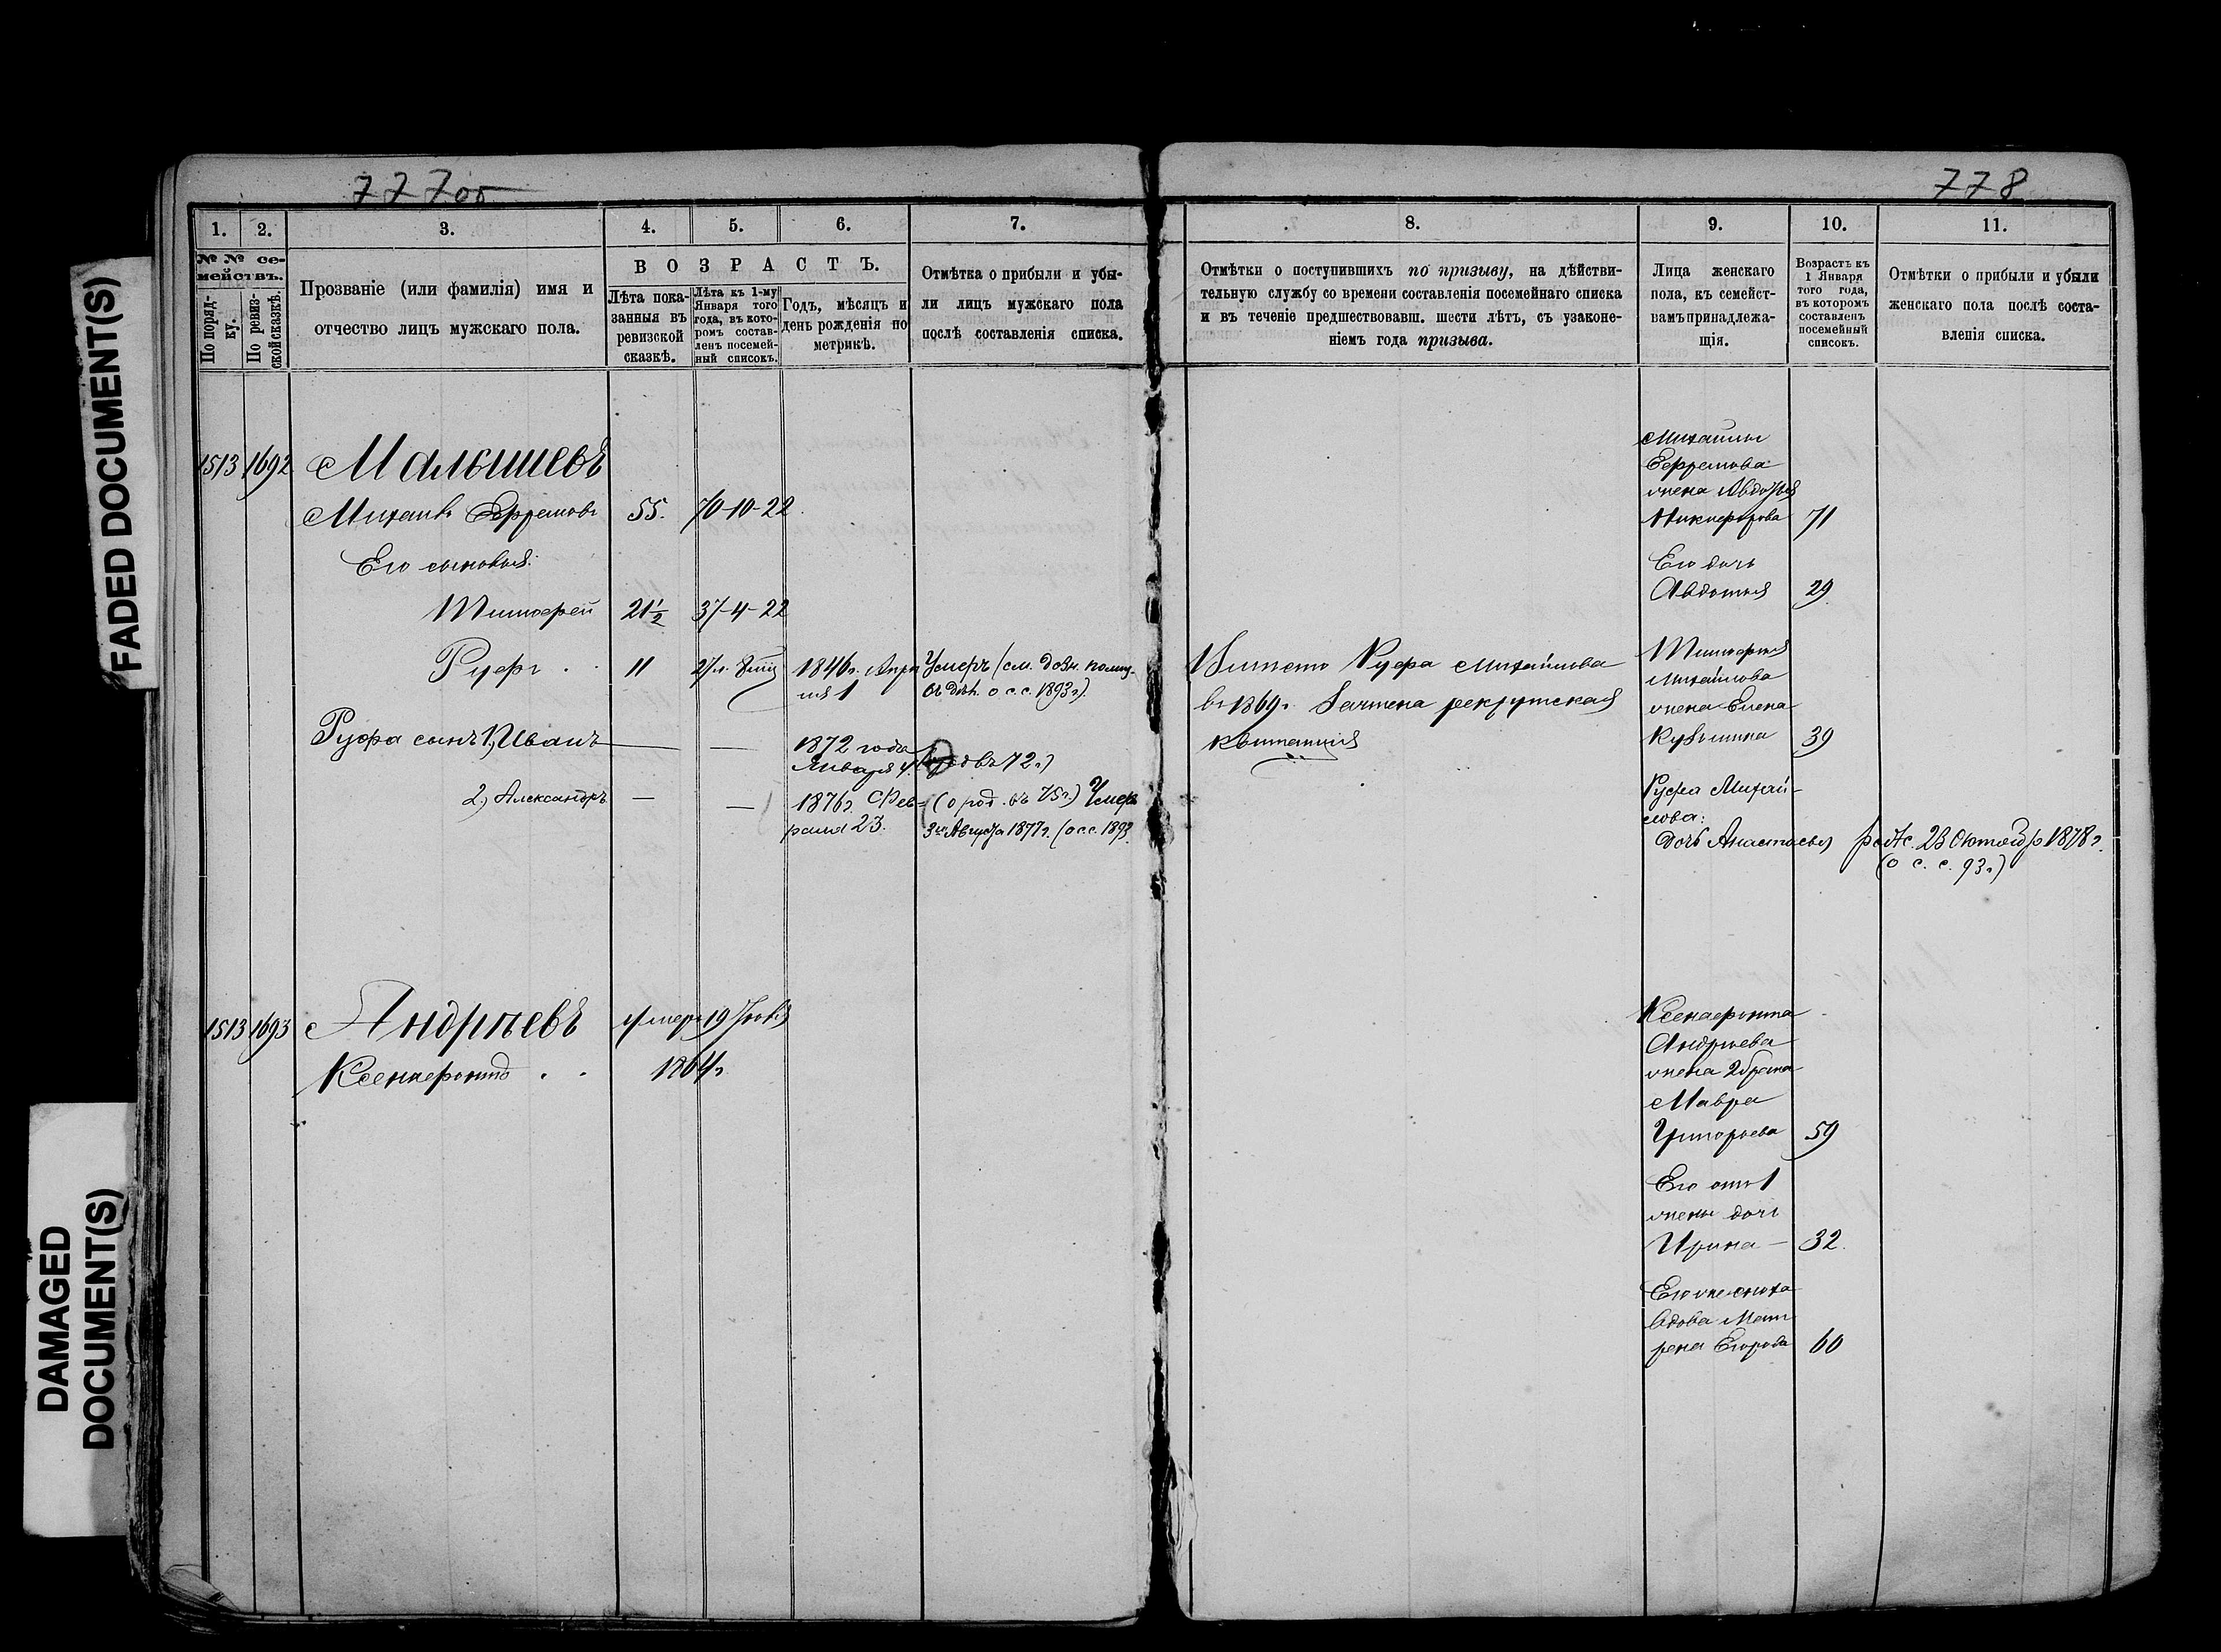 FADED DOCUMENT(S)
DAMAGED
DOCUMENT(S)
777об
1. 2. 3. 4. 5. 6. 7.
№ № се-
мействъ.
По поряд-
ку.
По ревиз-
ской сказкѣ.
Прозваніе (или фамилія) имя и
отчество лицъ мужскаго пола.
В О З Р А С Т Ъ.
Лѣта пока-
занныя въ
ревизской
сказкѣ.
Лѣта къ 1-му
Января того
года, въ кото-
ромъ состав-
ленъ посемей-
ный списокъ.
Годъ, мѣсяцъ и
день рожденія по
метрикѣ.
Отмѣтка о прибыли и убы-
ли лицъ мужскаго пола
послѣ составленія списка.
1513 1692 Малышевъ
Михаилъ Ефремовъ 55. 70-10-22
Его сыновья:
Тимофей 21½ 37-4-22
Руфъ 11 27л. 1846г. Апрѣ
ля 1
Умеръ (см. дозн. полиц.
въ дѣл. о с.с. 1893г.)
Руфа сынъ 1, Иванъ — — 1872 года
Января 4.
въ 72г.)
2, Александръ — — 1876г. Фев-
раля 23.
(о род. въ 75г.) Умеръ
3го Августа 1877г. (о с.с. 1893
1513 1693 Андрѣевъ умеръ 19
Ксенофонтъ 1864г.
778
8. 9. 10. 11.
Отмѣтки о поступившихъ по призыву, на дѣйстви-
тельную службу со времени составленія посемейнаго списка
и въ теченіе предшествовавш. шести лѣтъ, съ узаконе-
ніемъ года призыва.
Лица женскаго
пола, къ семейст-
вамъ принадлежа-
щія.
Возрастъ къ
1 Января
того года,
въ которомъ
составленъ
посемейный
списокъ.
Отмѣтки о прибыли и убыли
женскаго пола послѣ соста-
вленія списка.
Михаилы
Ефремова
жена Авдотья
Никифорова 71
Его дочь
Авдотья 29
Вмѣсто Руфа Михайлова
въ 1869г. Зачтена рекрутская
квитанція
Тимофея
Михайлова
жена Елена
Кузьмина 39
Руфа Михай-
лова:
дочь Анастасья род. 23 Октяб 1878г.
(о с. с. 93г.)
Ксенофонта
Андрѣева
жена 2 брака
Мавра
Григорьева 59
Его отъ 1
жены дочь
Ирина — 32.
Его же сноха
вдова Мат
рена Егорова 60